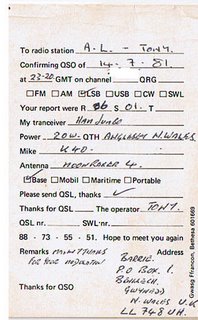 To radio station A.L - TONY.
Confirming QSO of 14.7.81.
at 23-20 GMT on channel QRG
FM AM LSB USB CW SWL
Your report were R 06 S 01. T
My tranceiver HAM JUMBO
Power 20W. QTH ANGLESEY N.WALES
Mike K40.
Antenna MOONRAKER 4.
Base Mobil Maritime Portable
Please send QSL, thanks
Thanks for QSL The operator TONY.
QSL nr. SWL nr.
88 - 73 - 55 - 51. Hope to meet you again
Remarks MANY THANKS Address
FOR YOUR
BARRIE.
P.O BOX. 1.
GWYNEDD
Thanks for QSO
N. WALES U.K
LL 748 UH.
Gwasg Ffrancon, Bethesda 601669